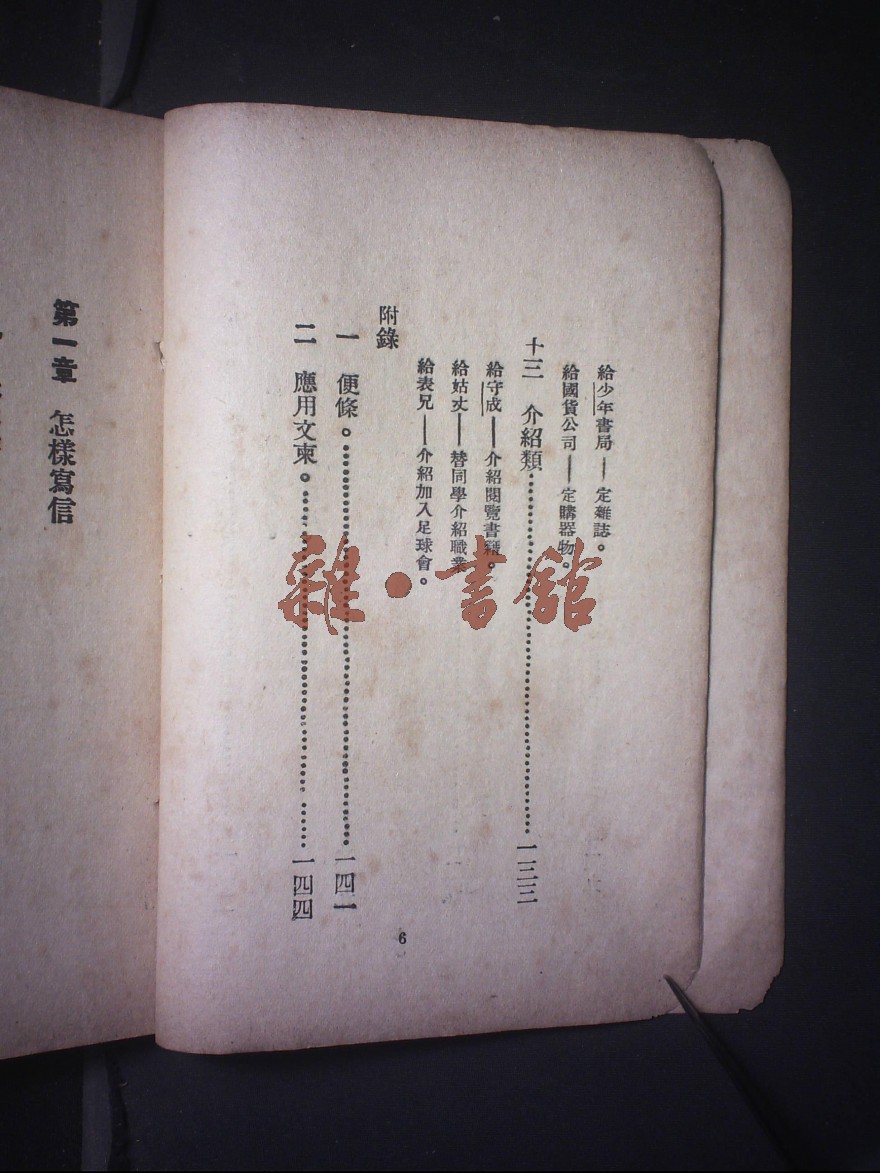 給少年書局——定雜誌。
給國貨公司——定購器物。
十三 介紹類……一三三
給守成——介紹閱覽書籍。
給姑丈——替同學介紹職業
給表兄——介紹加入足球會。
附錄
一 便條。……一四一
二 應用文柬。……一四四
6
第一章 怎樣寫信
雜·書館